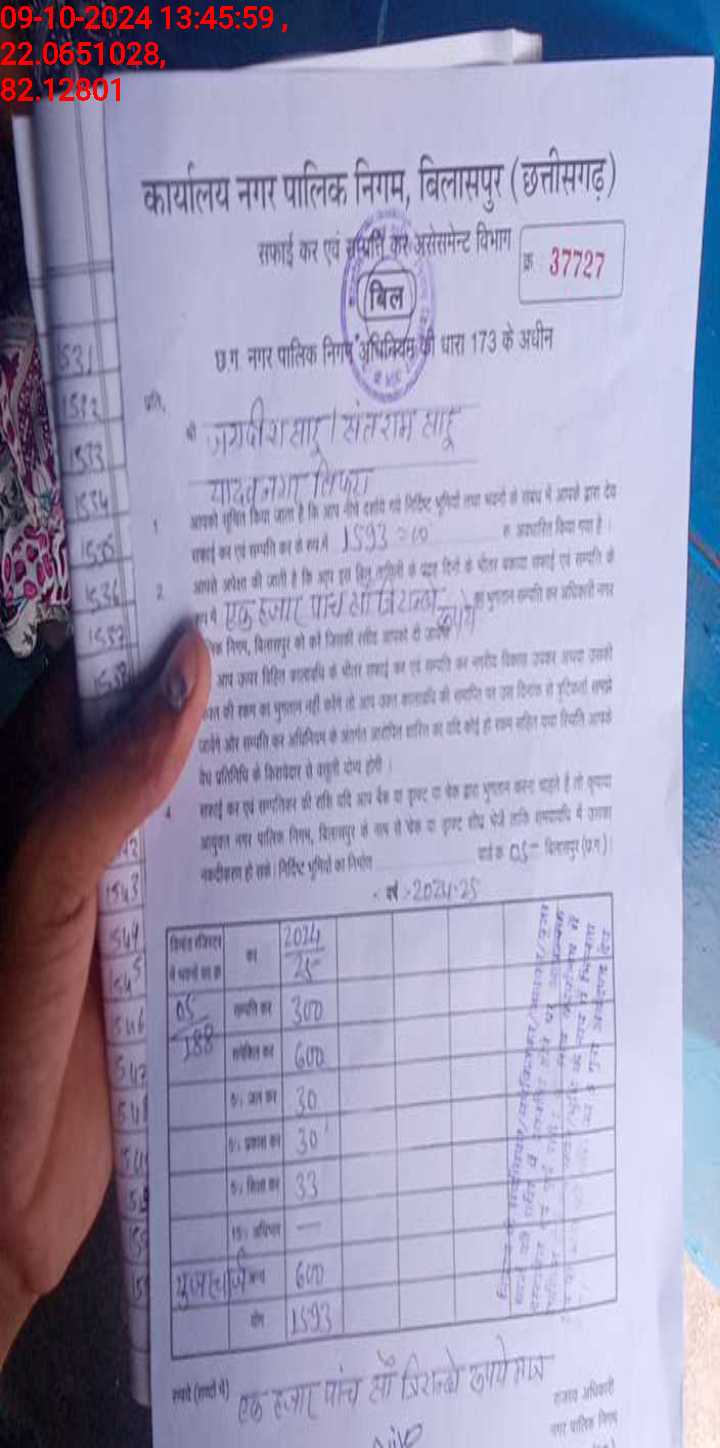 09-10-2024 13:45:59 ,
22.0651028,
82.12801
कार्यालय नगर पालिक निगम, बिलासपुर (छत्तीसगढ़)
सफाई कर एवं सम्पत्ति कर असेसमेन्ट विभाग
क्र 37727
बिल
छ.ग नगर पालिक निगम अधिनियम की धारा 173 के अधीन
प्रति,
श्री जगदीश साहू / संतराम साहू
यादव नगर तिफरा
1 आपको सूचित किया जाता है कि आप नीचे दर्शाये गये निर्दिष्ट भूमियों तथा भवनों के संबंध में आपके द्वारा देय
सफाई कर एवं सम्पत्ति कर के रूप में 1593=00 रु. अवधारित किया गया है।
2 आपसे अपेक्षा की जाती है कि आप इस बिल के पन्द्रह दिनों के भीतर बकाया सफाई एवं सम्पत्ति के
रूप में एक हजार पांच सौ तिरान्बे रूपये का भुगतान सम्पत्ति कर अधिकारी नगर
निगम, बिलासपुर को करें जिसकी रसीद आपको दी जावेगी
आप ऊपर विहित कालावधि के भीतर सफाई कर एवं सम्पत्ति कर नगरीय विकास उपकर अथवा उसकी
की रकम का भुगतान नहीं करेंगे तो आप उक्त कालावधि की समाप्ति पर उस दिनांक से त्रुटिकर्ता समझे
जावेंगे और सम्पत्ति कर अधिनियम के अंतर्गत आरोपित शास्ति का यदि कोई हो रकम सहित यथा स्थिति आपके
वैध प्रतिनिधि के किरायेदार से वसूली योग्य होगी।
4 सफाई कर एवं सम्पत्तिकर की राशि यदि आप बैंक या ड्राफ्ट या चेक द्वारा भुगतान करना चाहते हैं तो कृपया
आयुक्त नगर पालिक निगम, बिलासपुर के नाम से चेक या ड्राफ्ट शीघ्र भेजें ताकि समयावधि में उसका
नकदीकरण हो सके। निर्दिष्ट भूमियों का निर्माण वार्ड क्र 05 बिलासपुर (छ.ग.)
वर्ष :-2024-25
डिमांड रजिस्टर में भवनों का क्र कर 2024/25
05/188 सम्पत्ति कर 300
समेकित कर 600
5% जल कर 30
5% प्रकाश कर 30
5% शिक्षा कर 33
15% अधिभार —
युजर चार्ज अन्य 600
योग 1593
रूपये (शब्दों में) एक हजार पांच सौ तिरान्बे रूपये मात्र
राजस्व अधिकारी
नगर पालिक निगम
1531
1532
1533
1534
1535
1536
1537
1543